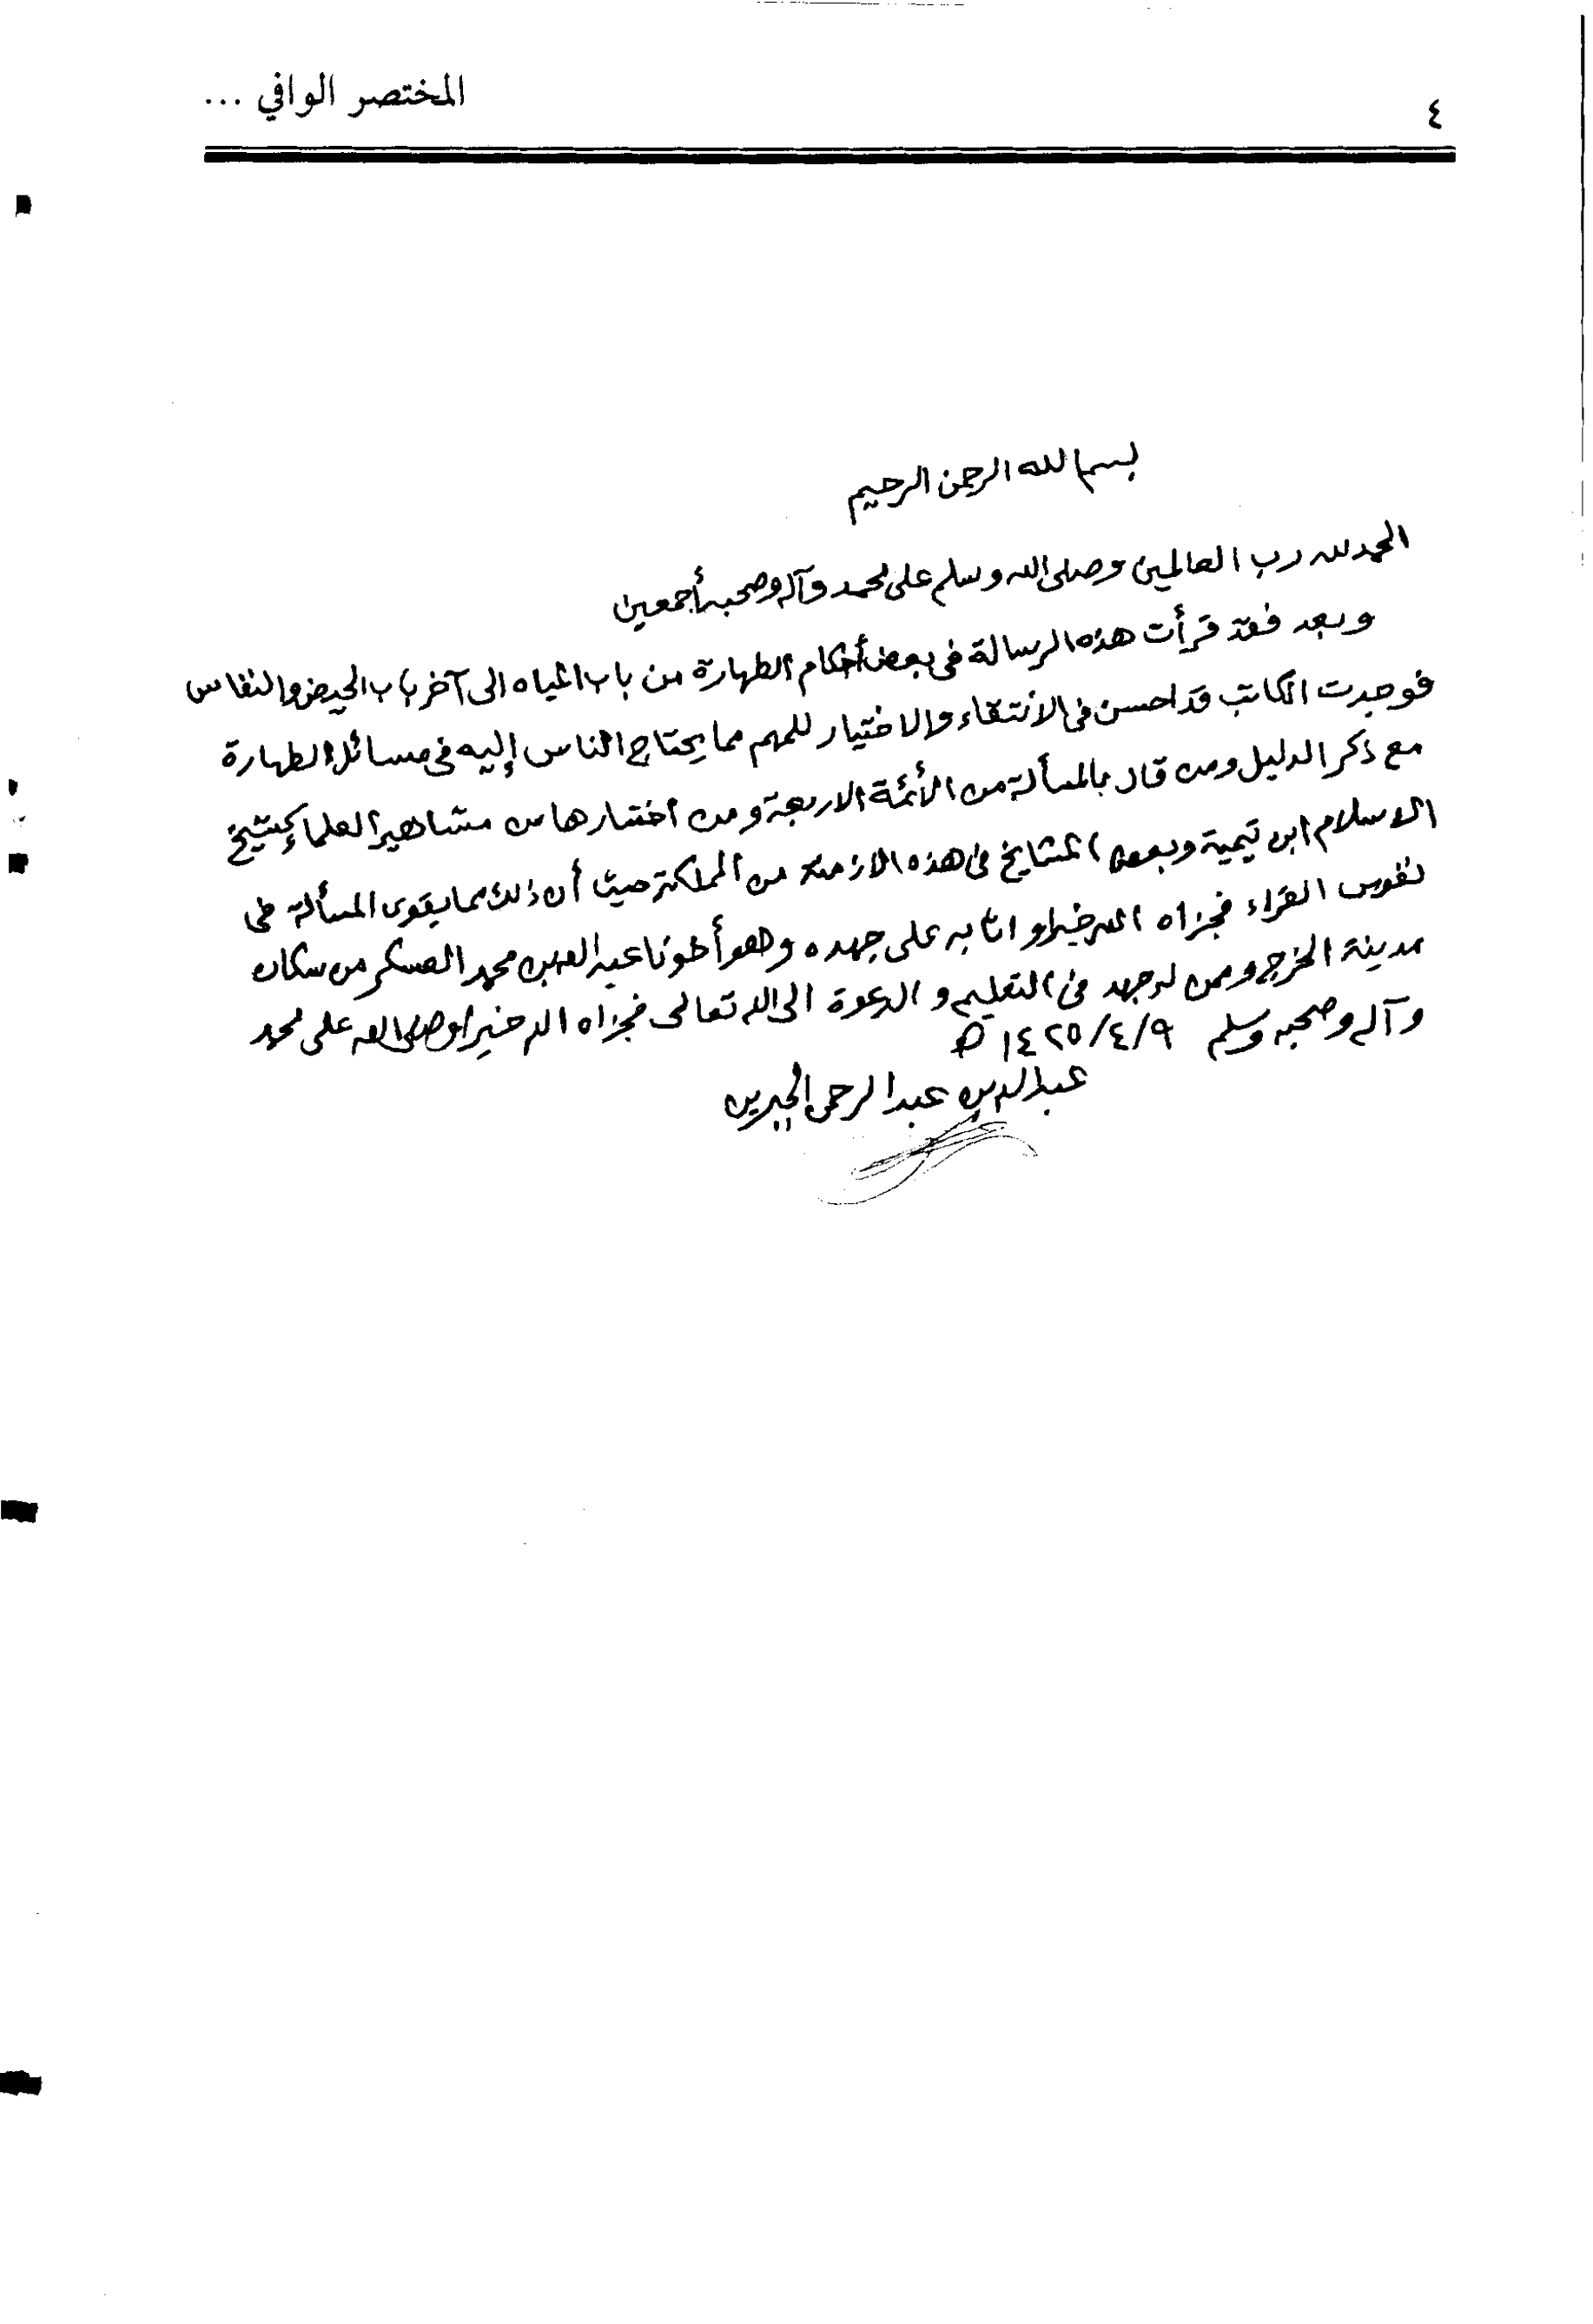 المختصر الوافي ...
٤
بسم الله الرحمن الرحيم
الحمد لله رب العالمين وصلى الله وسلم على محمد وآله وصحبه أجمعين
وبعد فقد قرأت هذه الرسالة في بعض أحكام الطهارة من باب المياه الى آخر باب الحيض والنفاس
فوجدت الكاتب قد احسن في الانتقاء والاختيار للمهم مما يحتاج الناس إليه في مسائل الطهارة
مع ذكر الدليل ومن قال بالمسألة من الأئمة الاربعة ومن اختارها من مشاهير العلما كشيخ
الاسلام ابن تيمية وبعض المشايخ في هذه الازمنة من المملكة حيث أن ذلك مما يقوى المسألة في
نفوس القراء فجزاه الله خيرا واثابه على جهده وهو أخونا عبد الله بن محمد العسكر من سكان
مدينة الخرج وممن له جهد في التعليم والدعوة الى الله تعالى فجزاه الله خيرا وصلى الله على محمد
وآله وصحبه وسلم ١٤٢٥/٤/٩ هـ
عبد الله بن عبد الرحمن الجبرين